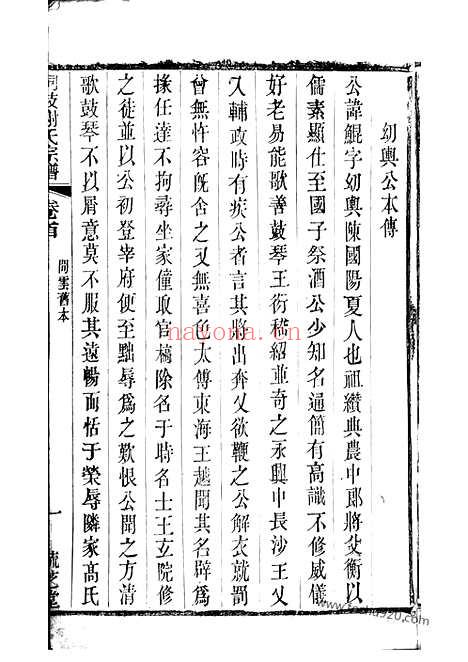 幼輿公本傳
公諱鯤字幼輿陳國陽夏人也祖纘典農中郎將父衡以
儒素顯仕至國子祭酒公少知名通簡有高識不修威儀
好老易能歌善鼓琴王衍嵇紹並奇之永興中長沙王乂
入輔政時有疾公者言其將出奔乂欲鞭之公解衣就罰
曾無忤容旣舍之又無喜色太傅東海王越聞其名辟為
掾任達不拘尋坐家僮取官稿除名于時名士王玄阮修
之徒並以公初登宰府便至黜辱為之歎恨公聞之方清
歌鼓琴不以屑意莫不服其遠暢而恬于榮辱隣家高氏
謝氏宗譜
卷首
間雲舊本
一
nayona.cn